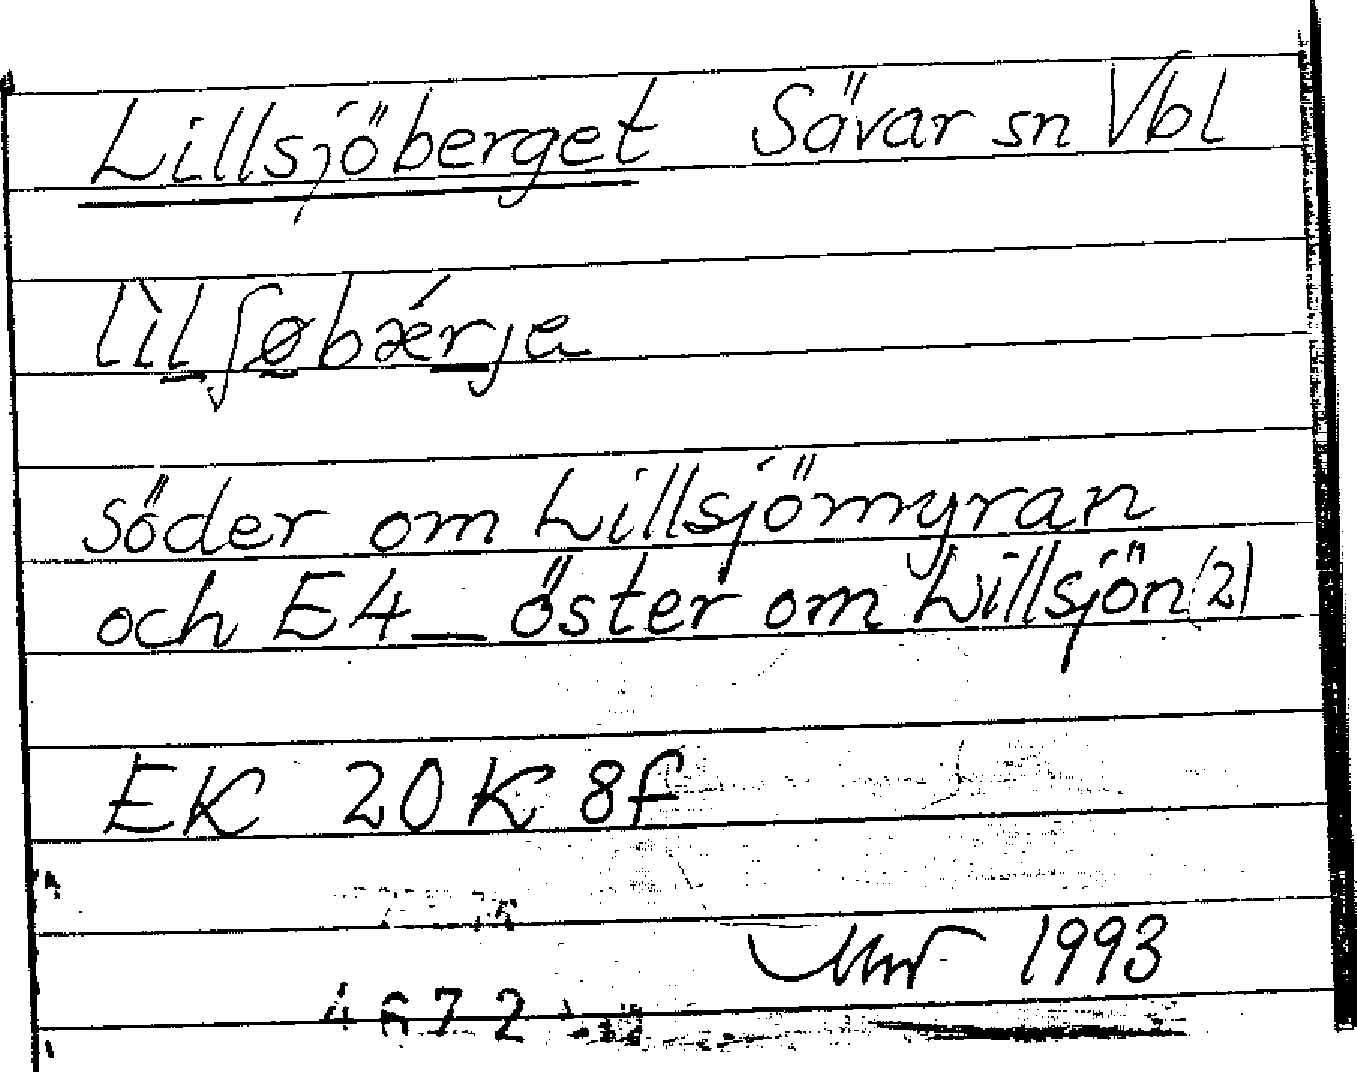 Lillsjöberget Sävar sn Vbl
lìlʃøbǽrjа
söder om Lillsjömyran
och E4 — öster om Lillsjön (2)
EK 20K 8f
1993
4672